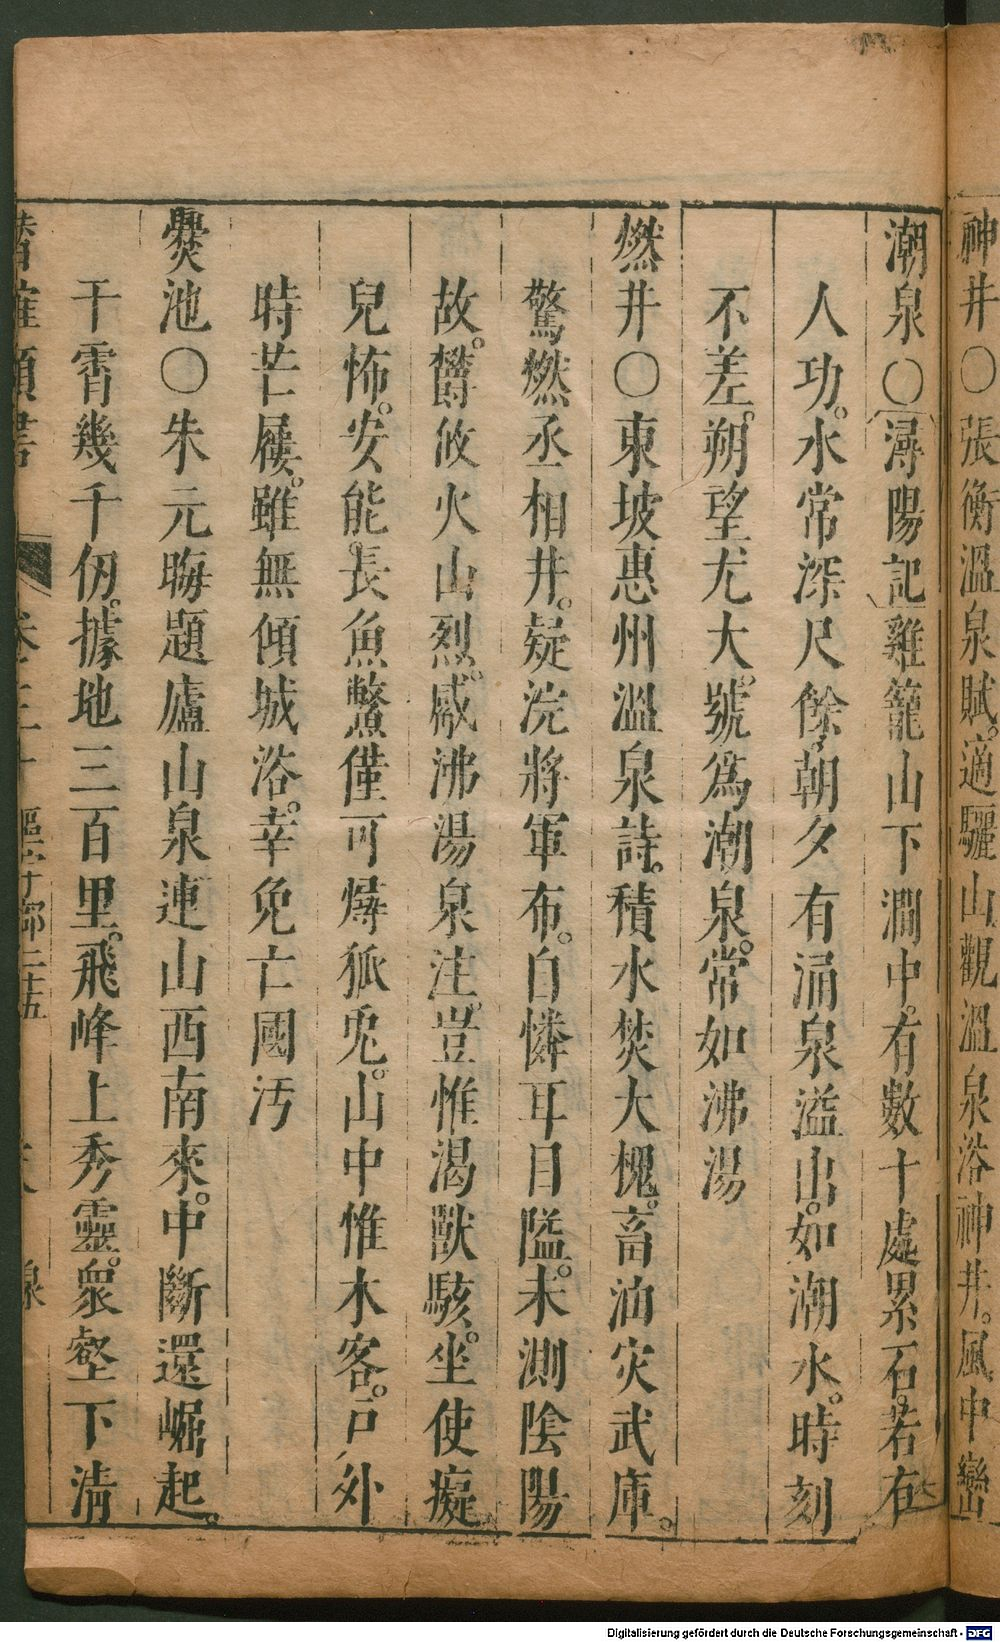 神井〇張衡溫泉賦。適驪山觀溫泉浴神井。風中巒
潮泉〇潯陽記雞籠山下澗中。有數十處累石。若有
人功。水常深尺餘。朝夕有涌泉溢出。如潮水。時刻
不差。朔望尤大。號爲潮泉。常如沸湯
燃井〇東坡惠州溫泉詩。積水焚大槐。畜油灾武庫。
驚燃丞相井。疑浣將軍布。自憐耳目隘。未測陰陽
故。欝攸火山烈。觱沸湯泉注。豈惟渴獸駭。坐使癡
兒怖。安能長魚鱉。僅可燖狐兎。山中惟木客。戸外
時芒屨。雖無傾城浴。幸免亡國汚
爨池〇朱元晦題廬山泉連山西南來。中斷還崛起。
干霄幾千仞。據地三百里。飛峰上秀靈。衆壑下淸
卷三十 區宇部二十五 泉
Digitalisierung gefördert durch die Deutsche Forschungsgemeinschaft - DFG